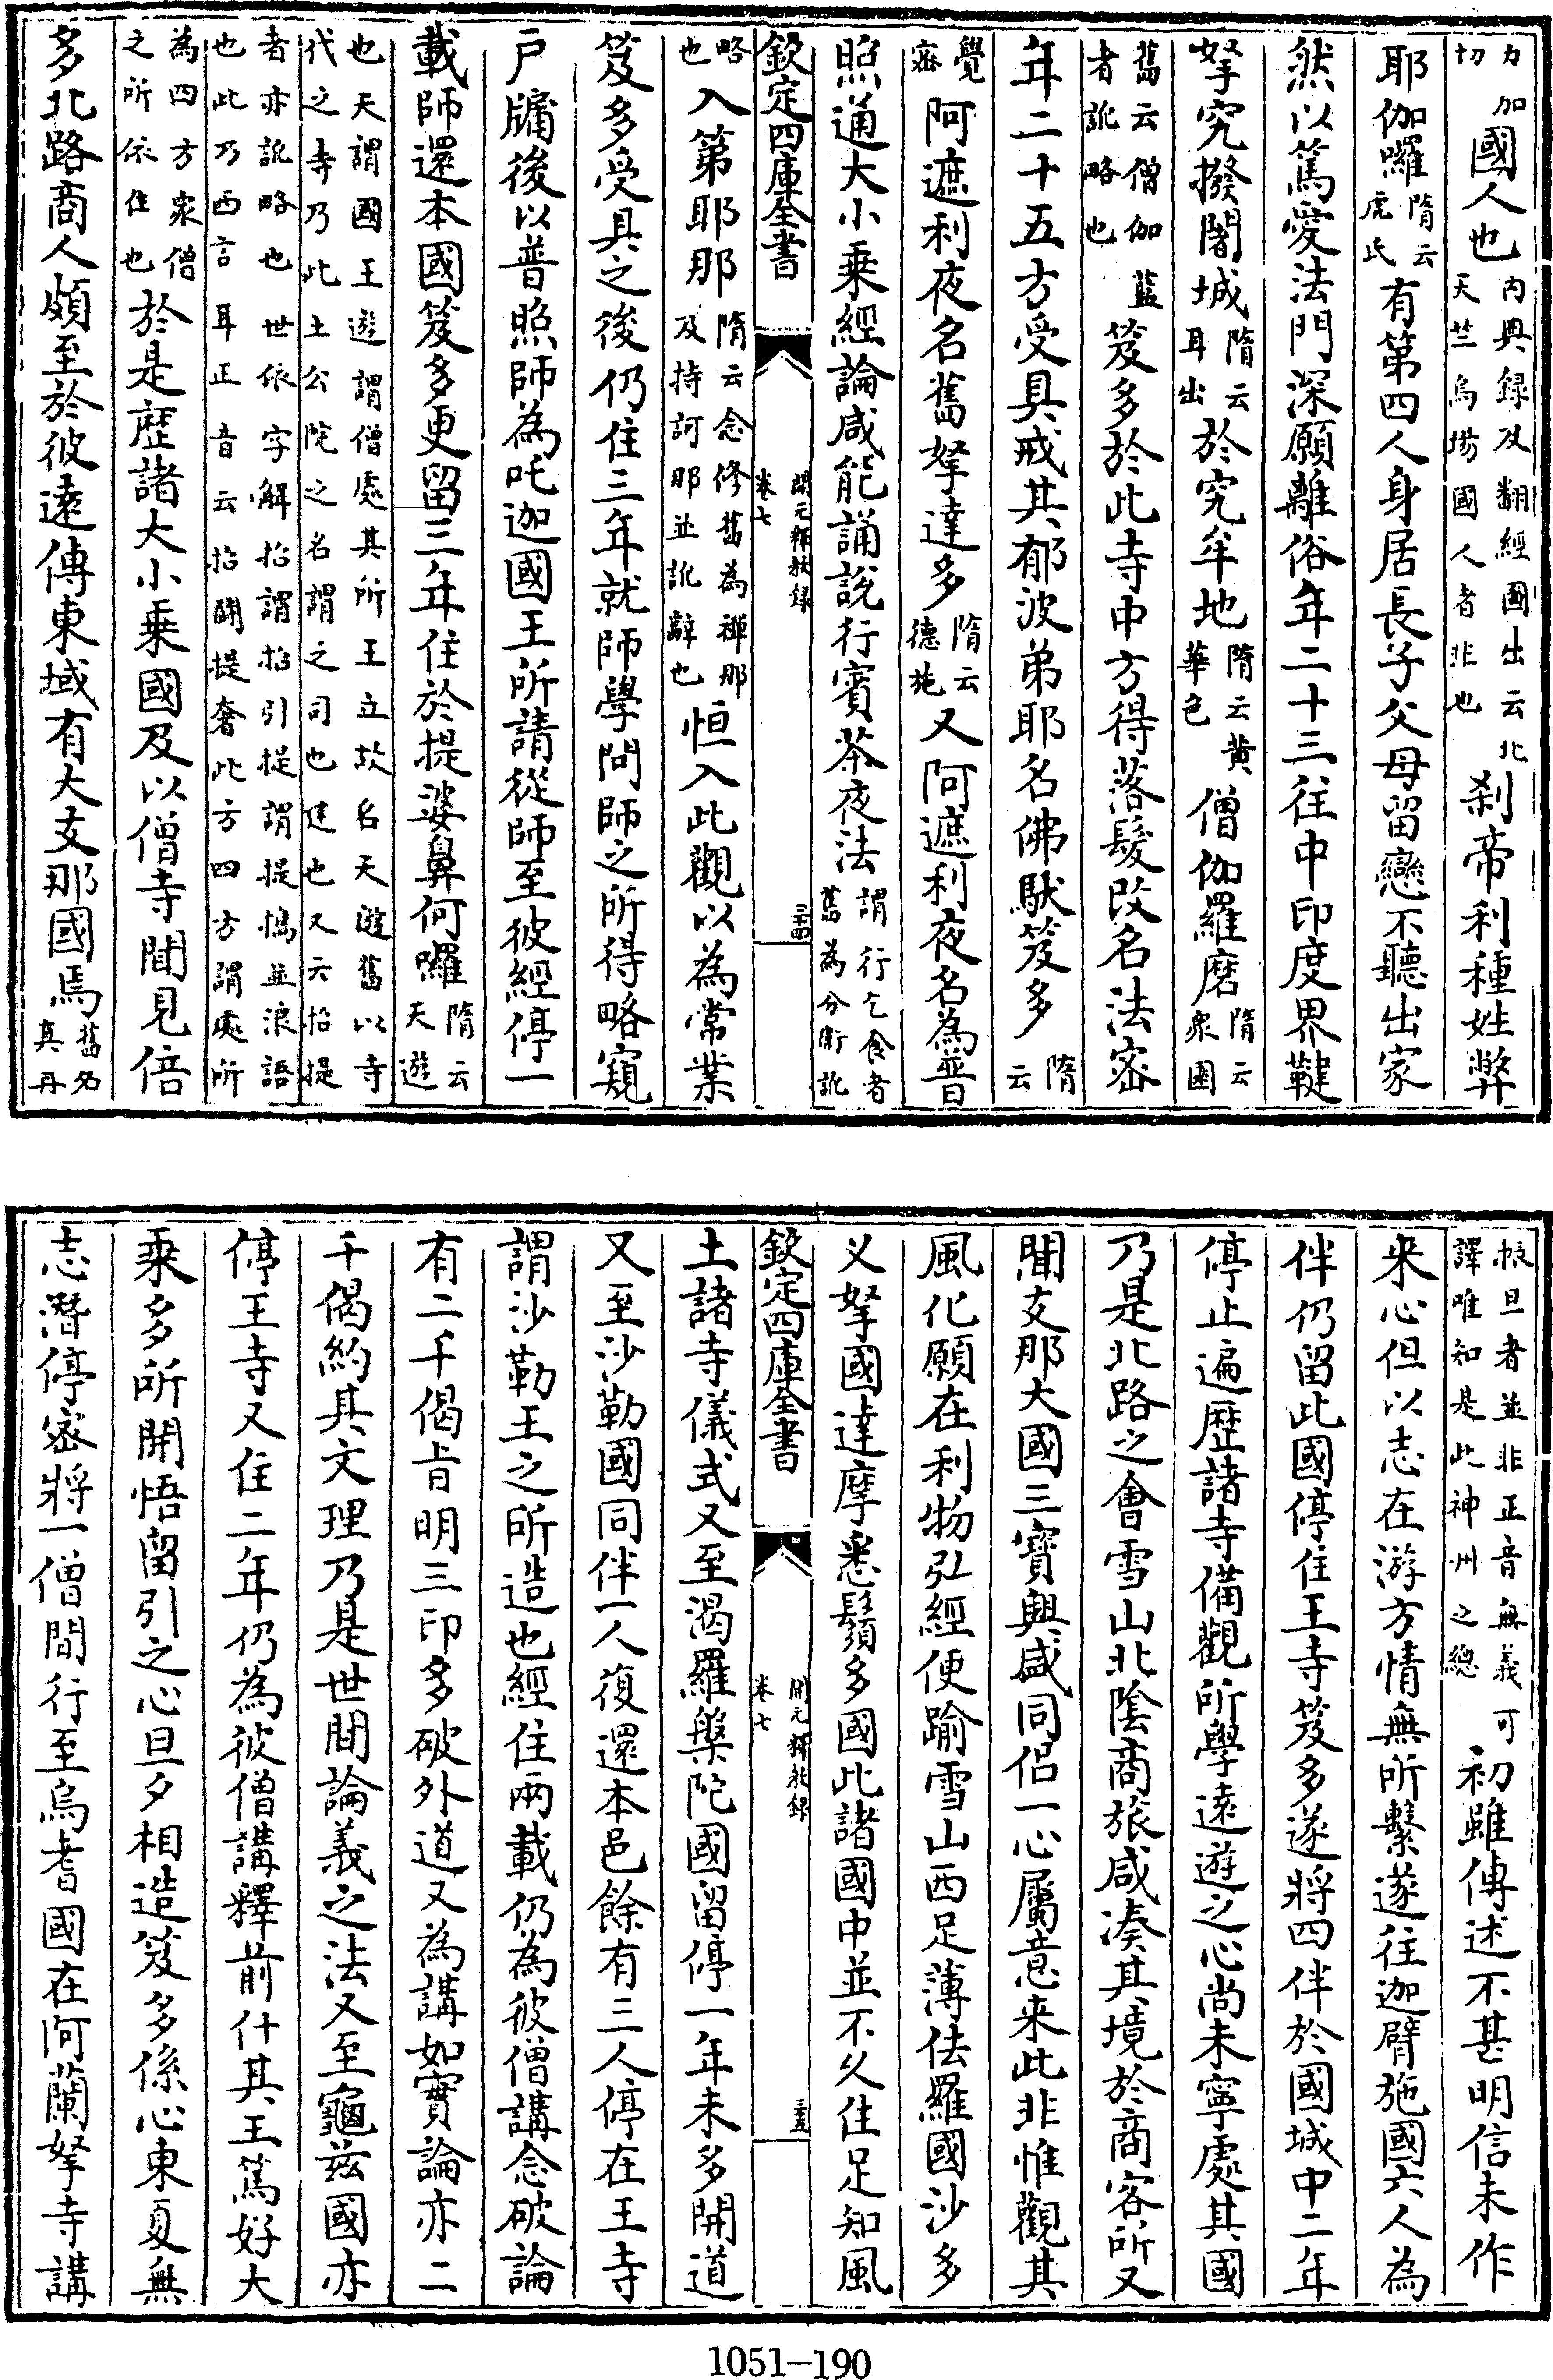 力加切國人也内典録及翻經圖出云北天竺烏場國人者非也刹帝利種姓弊
耶伽囉隋云虎氏有第四人身居長子父母留戀不聽出家
然以篤愛法門深願離俗年二十三往中印度界鞬
拏究撥闍城隋云耳出於究牟地隋云黄華色僧伽羅磨隋云衆園
舊云僧伽藍者訛略也笈多於此寺中方得落髮改名法密
年二十五方受具戒其郁波弟耶名佛馱笈多隋云
覺密阿遮利夜名舊拏達多隋云德施又阿遮利夜名為普
照通大小乘經論咸能誦説行賓荼夜法謂行乞食者舊為分衛訛
欽定四庫全書 開元釋教録 卷七 三十四
略也入第耶那隋云念修舊為禪那及持訶那並訛辭也恒入此觀以為常業
笈多受具之後仍住三年就師學問師之所得略窺
户牖後以普照師為吒迦國王所請從師至彼經停一
載師還本國笈多更留三年住於提婆鼻何囉隋云天遊
也天謂國王遊謂僧處其所王立故名天遊舊以寺代之寺乃此土公院之名謂之司也廷也又云招提
者亦訛略也世依字解招謂招引提謂提携並浪語也此乃西言耳正音云招鬭提奢此方四方謂處所
為四方衆僧之所依住也於是歴諸大小乘國及以僧寺聞見倍
多北路商人頗至於彼遠傳東域有大支那國焉舊名真丹
振旦者並非正音無義可譯唯知是此神州之總初雖傳述不甚明信未作
來心但以志在游方情無所繫遂往迦臂施國六人為
伴仍留此國停住王寺笈多遂將四伴於國城中二年
停止遍歴諸寺備觀所學遠遊之心尚未寧處其國
乃是北路之會雪山北陰商旅咸湊其境於商客所又
聞支那大國三寶興盛同侣一心屬意來此非惟觀其
風化願在利物弘經便踰雪山西足薄佉羅國沙多
义拏國達摩悉鬚多國此諸國中並不久住足知風
欽定四庫全書 開元釋教録 卷七 三十五
土諸寺儀式又至渴羅槃陀國留停一年未多開道
又至沙勒國同伴一人復還本邑餘有三人停在王寺
謂沙勒王之所造也經住兩載仍為彼僧講念破論
有二千偈旨明三印多破外道又為講如實論亦二
千偈約其文理乃是世間論義之法又至龜兹國亦
停王寺又住二年仍為彼僧講釋前什其王篤好大
乘多所開悟留引之心旦夕相造笈多係心東夏無
志潛停密將一僧間行至烏耆國在阿蘭拏寺講
1051–190